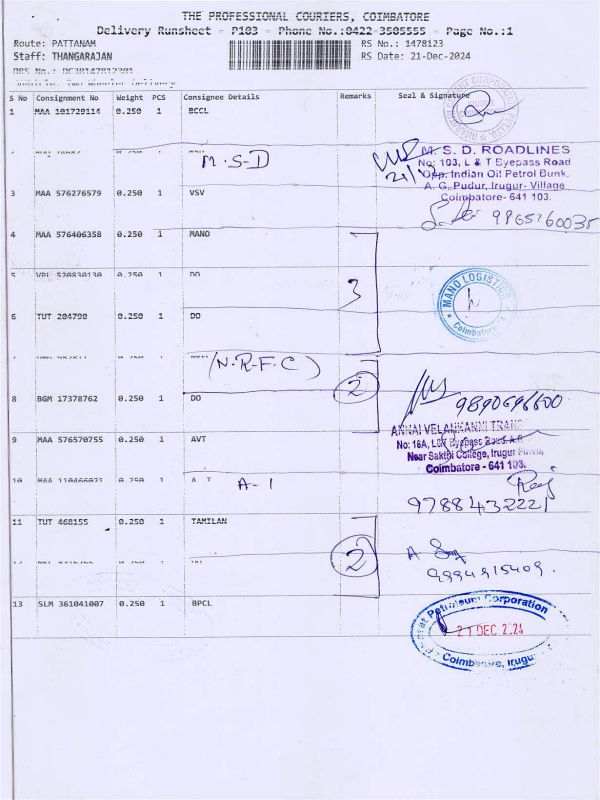 THE PROFESSIONAL COURIERS, COIMBATORE
Delivery Runsheet - P103 - Phone No.:0422-3505555 - Page No.:1
Route: PATTANAM
RS No.: 1478123
Staff: THANGARAJAN
RS Date: 21-Dec-2024
S No Consignment No Weight PCS Consignee Details Remarks Seal & Signature
1 MAA 101729114 0.250 1 BCCL
M.S-D
M. S. D. ROADLINES
No: 103, L & T Byepass Road
Opp. Indian Oil Petrol Bunk,
A. G. Pudur, Irugur- Village
Coimbatore- 641 103.
3 MAA 576276579 0.250 1 VSV
9865260035
4 MAA 576406358 0.250 1 MANO
5 0.250 1 DO
3
MANO LOGISTICS
Coimbatore
6 TUT 204790 0.250 1 DO
(N-R-F-C)
2
8 BGM 17378762 0.250 1 DO
9890696600
9 MAA 576570755 0.250 1 AVT
ANNAI VELANKANNI TRANS
No: 16A, L&T Byepass Road, A.G
Near Sakthi College, Irugur
Coimbatore - 641 103.
10 0.250 1
A-1
Raj
9788432221
11 TUT 468155 0.250 1 TAMILAN
2
9994915409.
13 SLM 361041007 0.250 1 BPCL
Petroleum Corporation
21 DEC 2024
Coimbatore, Irugur